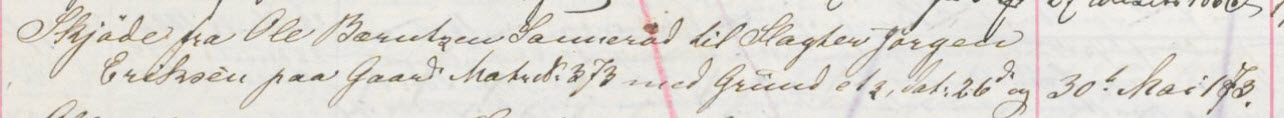 Skjöde fra Ole Berntzen Sannerød til Slagter Jørgen
Eriksen paa Gaard Matr. N. 373 med Grund etz, dat. 26d. og 30t. Mai 1873.